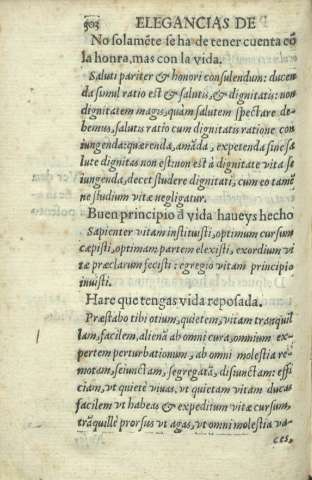 302 ELEGANCIAS DE
No solamẽte se ha de tener cuenta cõ
la honra, mas con la vida.
Saluti pariter & honori consulendum: ducen
da simul ratio est & salutis, & dignitatis: non
dignitatem magis, quam salutem spectare de-
bemus, salutis ratio cum dignitatis ratione con
iungenda: quærenda, amãda, expetenda sine sa
lute dignitas non est: non est à dignitate vita se
iungenda, decet studere dignitati, cum eo tamẽ
ne studium vitæ negligatur.
Buen principio ã vida haueys hecho
Sapienter vitam instituisti, optimum cursum
cæpisti, optimam partem elexisti, exordium vi
tæ præclarum fecisti: egregio vitam principio
iniuisti.
Hare que tengas vida reposada.
Præstabo tibi otium, quietem, vitam tranquil
lam, facilem, alienã ab omni cura, omnium ex-
pertem perturbationum, ab omni molestia re-
motam, seiunctam, segregatã, disiunctam: effi
ciam, vt quietè viuas. vt quietam vitam ducas
facilem vt habeas & expeditum vitæ cursum,
trãquillè prorsus vt agas, vt omni molestia va-
ces,